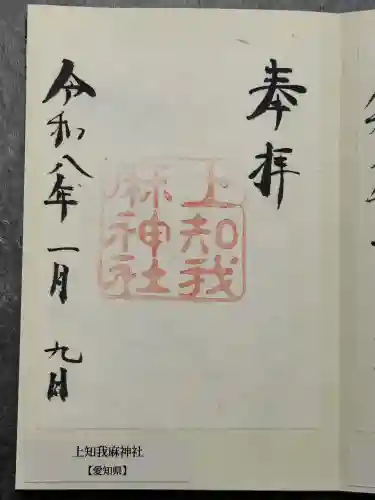 奉拝
上知我
麻神社
令和八年 一月 九日
上知我麻神社
【愛知県】